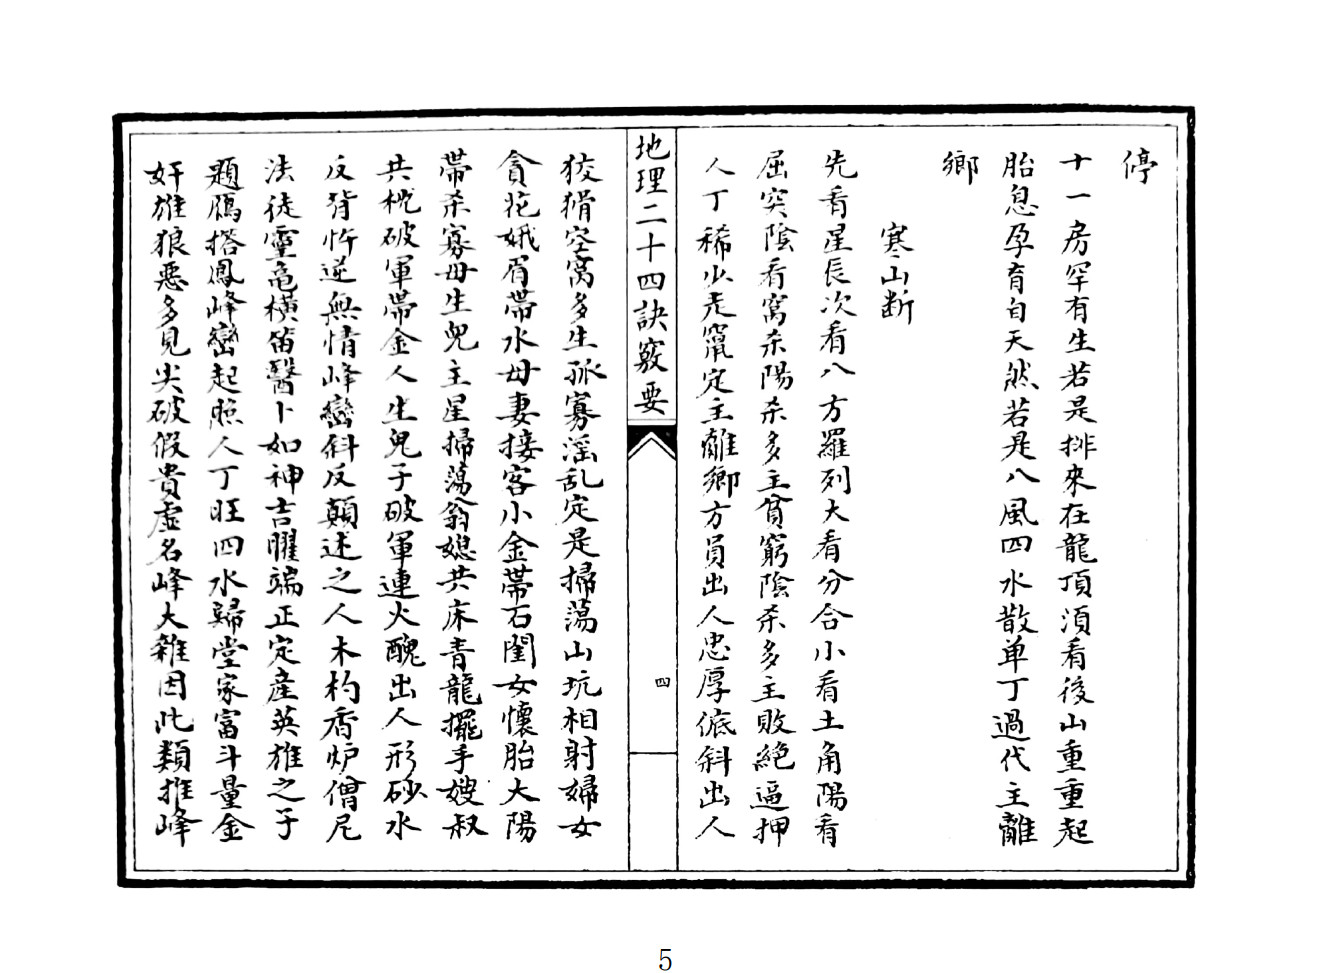 停
十一房罕有生若是排來在龍頂須看後山重重起
胎息孕育自天然若是八風四水散单丁過代主離
鄉
寒山断
先看星辰次看八方羅列大看分合小看土角陽看
屈突陰看窩杀陽杀多主貧窮陰杀多主敗絕逼押
人丁稀少走竄定主離鄉方員出人忠厚傾斜出人
地理二十四訣竅要
四
狡猾空窩多生孤寡淫乱定是掃蕩山坑相射婦女
貪花娥眉帶水母妻接客小金帶石閨女懷胎大陽
帶杀寡母生兒主星掃蕩翁媳共床青龍擺手嫂叔
共枕破軍帶金人生兒子破軍連火醜出人形砂水
反背忤逆無情峰巒斜反顛述之人木杓香炉僧尼
法徒靈龜橫笛醫卜如神吉曜端正定產英雄之子
題鴈搭鳳峰巒起照人丁旺四水歸堂家富斗量金
奸雄狼惡多見尖破假貴虛名峰大雜因此類推峰
5